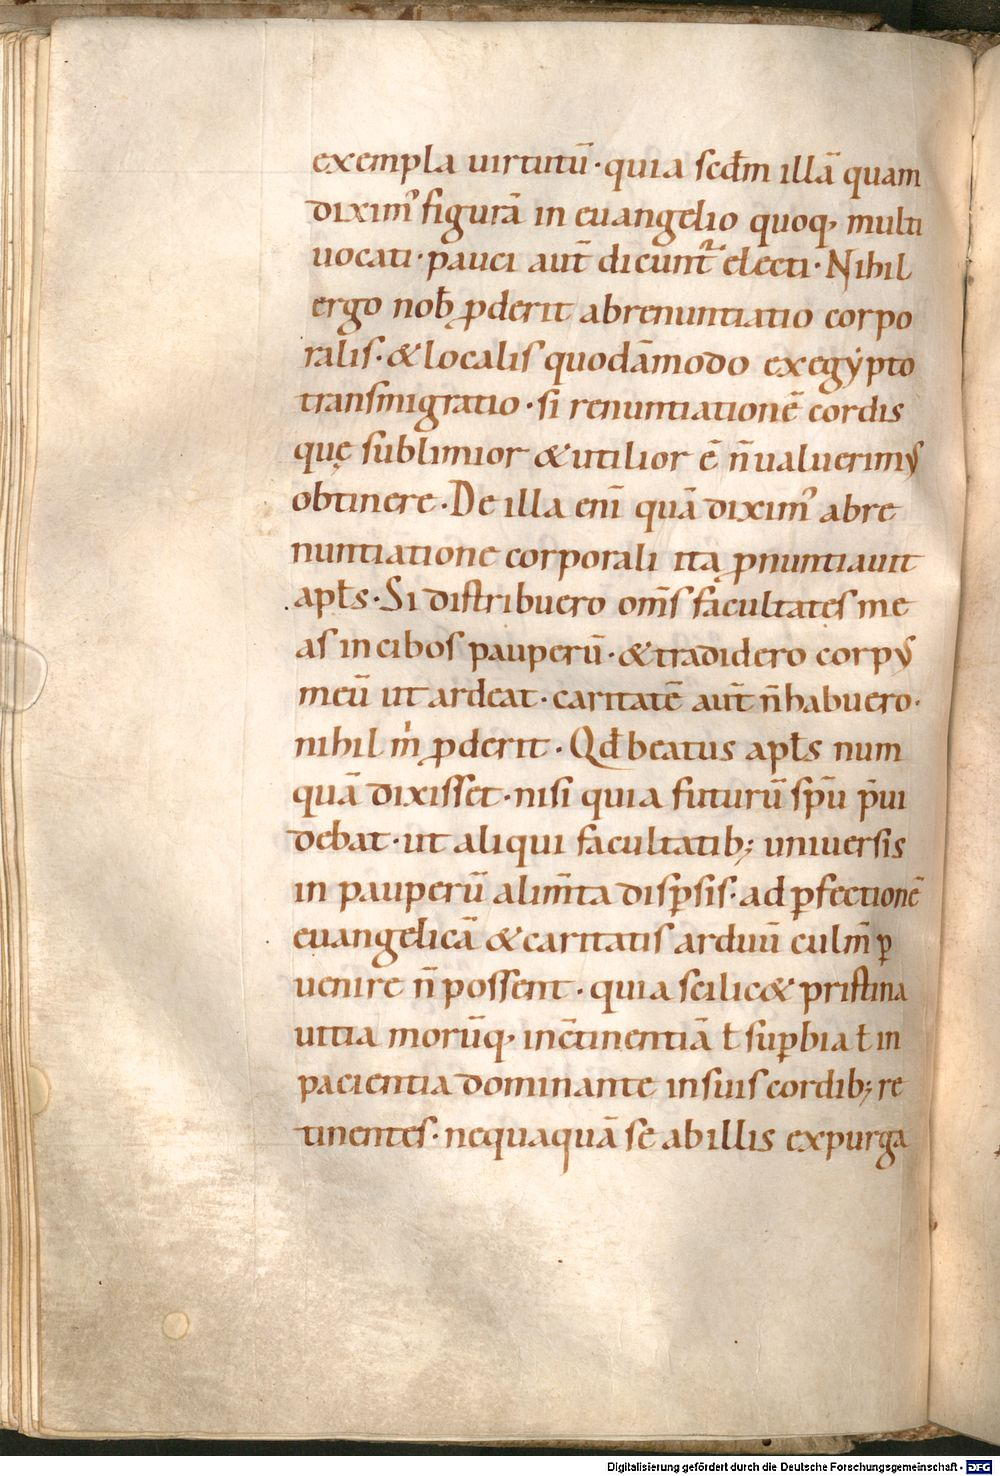 exempla uirtutū· quia scd̄m illā quam
dixim᾽ figurā in euangelio quoq, multi
uocati· pauci aut̄ dicunt᷑ electi· Nihil
ergo nob̄ ꝓderit abrenuntiatio corpo
ralis· & localis quodāmodo ex egẏpto
transmigratio· si renuntiationē cordis
quę sublimior & utilior ē n̄ ualuerimꝰ
obtinere· De illa eni̅ quā dixim᾽ abre
nuntiatione corporali ita ꝓnuntiauit
apłs· Si distribuero om̄s facultates me
as in cibos pauperū· & tradidero corpꝰ
meū ut ardeat· caritatē aut̄ n̄ habuero·
nihil m̍ ꝓderit· Qd̄ beatus apłs num
quā dixisset· nisi quia futurū sp̄u p̄ui
debat· ut aliqui facultatib; uniuersis
in pauperū alim̄ta disꝑsis· ad ꝑfectionē
euangelicā & caritatis arduū culm̄ ꝑ
uenire n̄ possent· quia scilic& pristina
uitia morūq, incōtinentiā ł suꝑbia ł in
pacientia dominante in suis cordib; re
tinentes· nequaquā se ab illis expurga
Digitalisierung gefördert durch die Deutsche Forschungsgemeinschaft - DFG